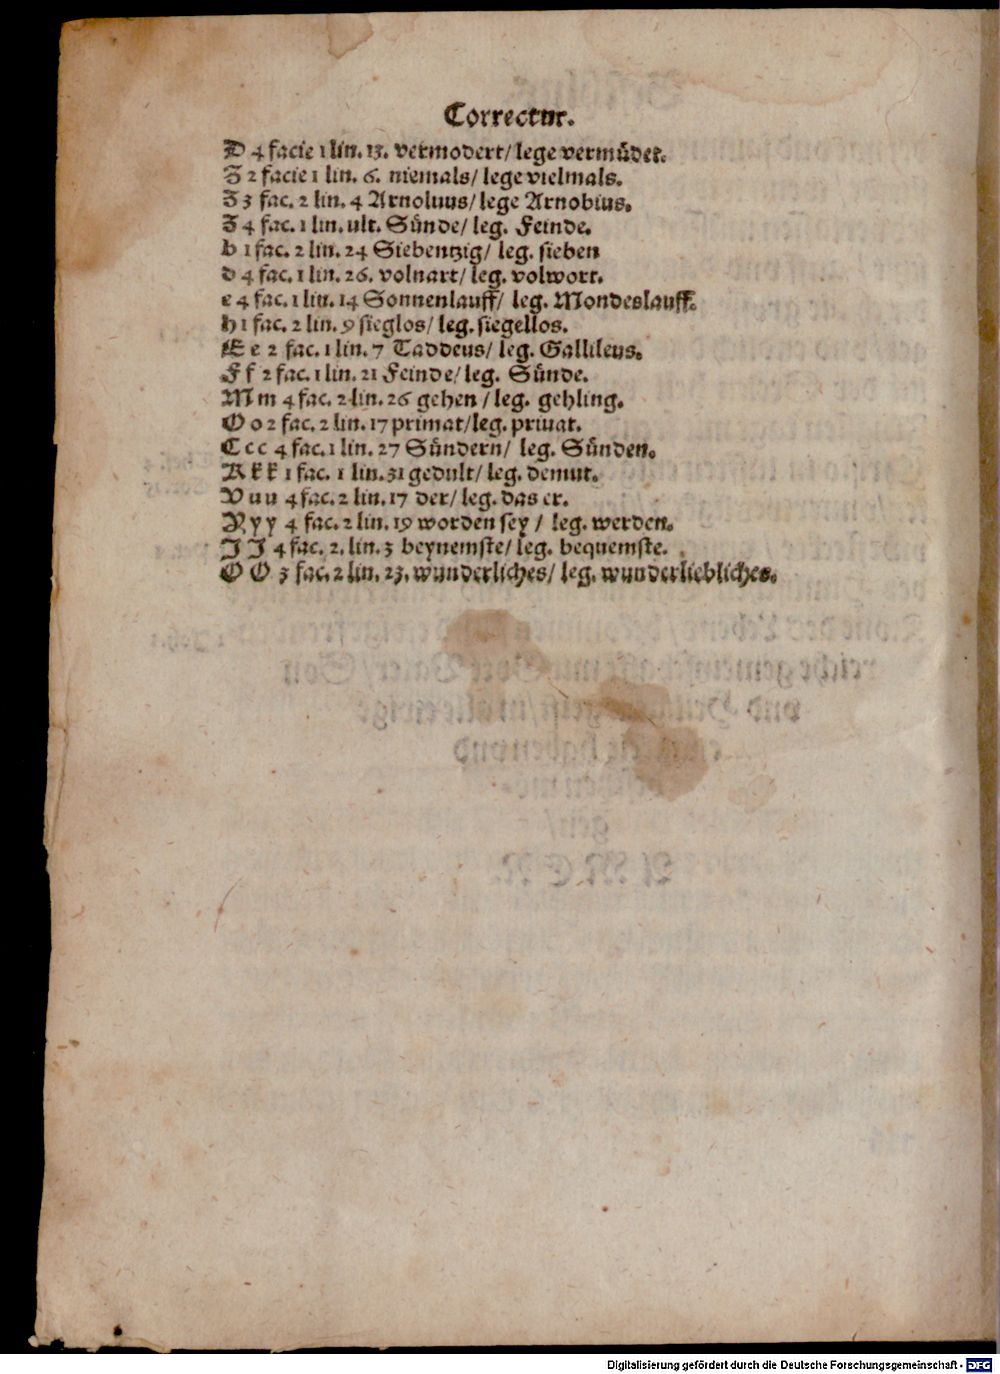 Correctur.
D 4 facie 1 lin. 13. vermodert/ lege vermüdet.
Z 2 facie 1 lin. 6. niemals/ lege vielmals.
Z 3 fac. 2 lin. 4 Arnoluus/ lege Arnobius.
Z 4 fac. 1 lin. ult. Sünde/ leg. Feinde.
b 1 fac. 2 lin. 24 Siebentzig/ leg. sieben
d 4 fac. 1 lin. 26. volnart/ leg. volwort.
e 4 fac. 1 lin. 14 Sonnenlauff/ leg. Mondeslauff.
h 1 fac. 2 lin. 9 sieglos/ leg. siegellos.
E e 2 fac. 1 lin. 7 Taddeus/ leg. Gallileus.
F f 2 fac. 1 lin. 21 Feinde/ leg. Sünde.
M m 4 fac. 2 lin. 26 gehen / leg. gehling.
O o 2 fac. 2 lin. 17 primat/ leg. priuat.
C c c 4 fac. 1 lin. 27 Sündern/ leg. Sünden.
K k k 1 fac. 1 lin. 31 gedult/ leg. demut.
V u u 4 fac. 2 lin. 17 der/ leg. das er.
Y y y 4 fac. 2 lin. 19 worden sey / leg. werden.
J J 4 fac. 2. lin. 3 beynemste/ leg. bequemste.
O O 3 fac. 2 lin. 23. wunderliches/ leg. wunderliebliches.
Digitalisierung gefördert durch die Deutsche Forschungsgemeinschaft - DFG